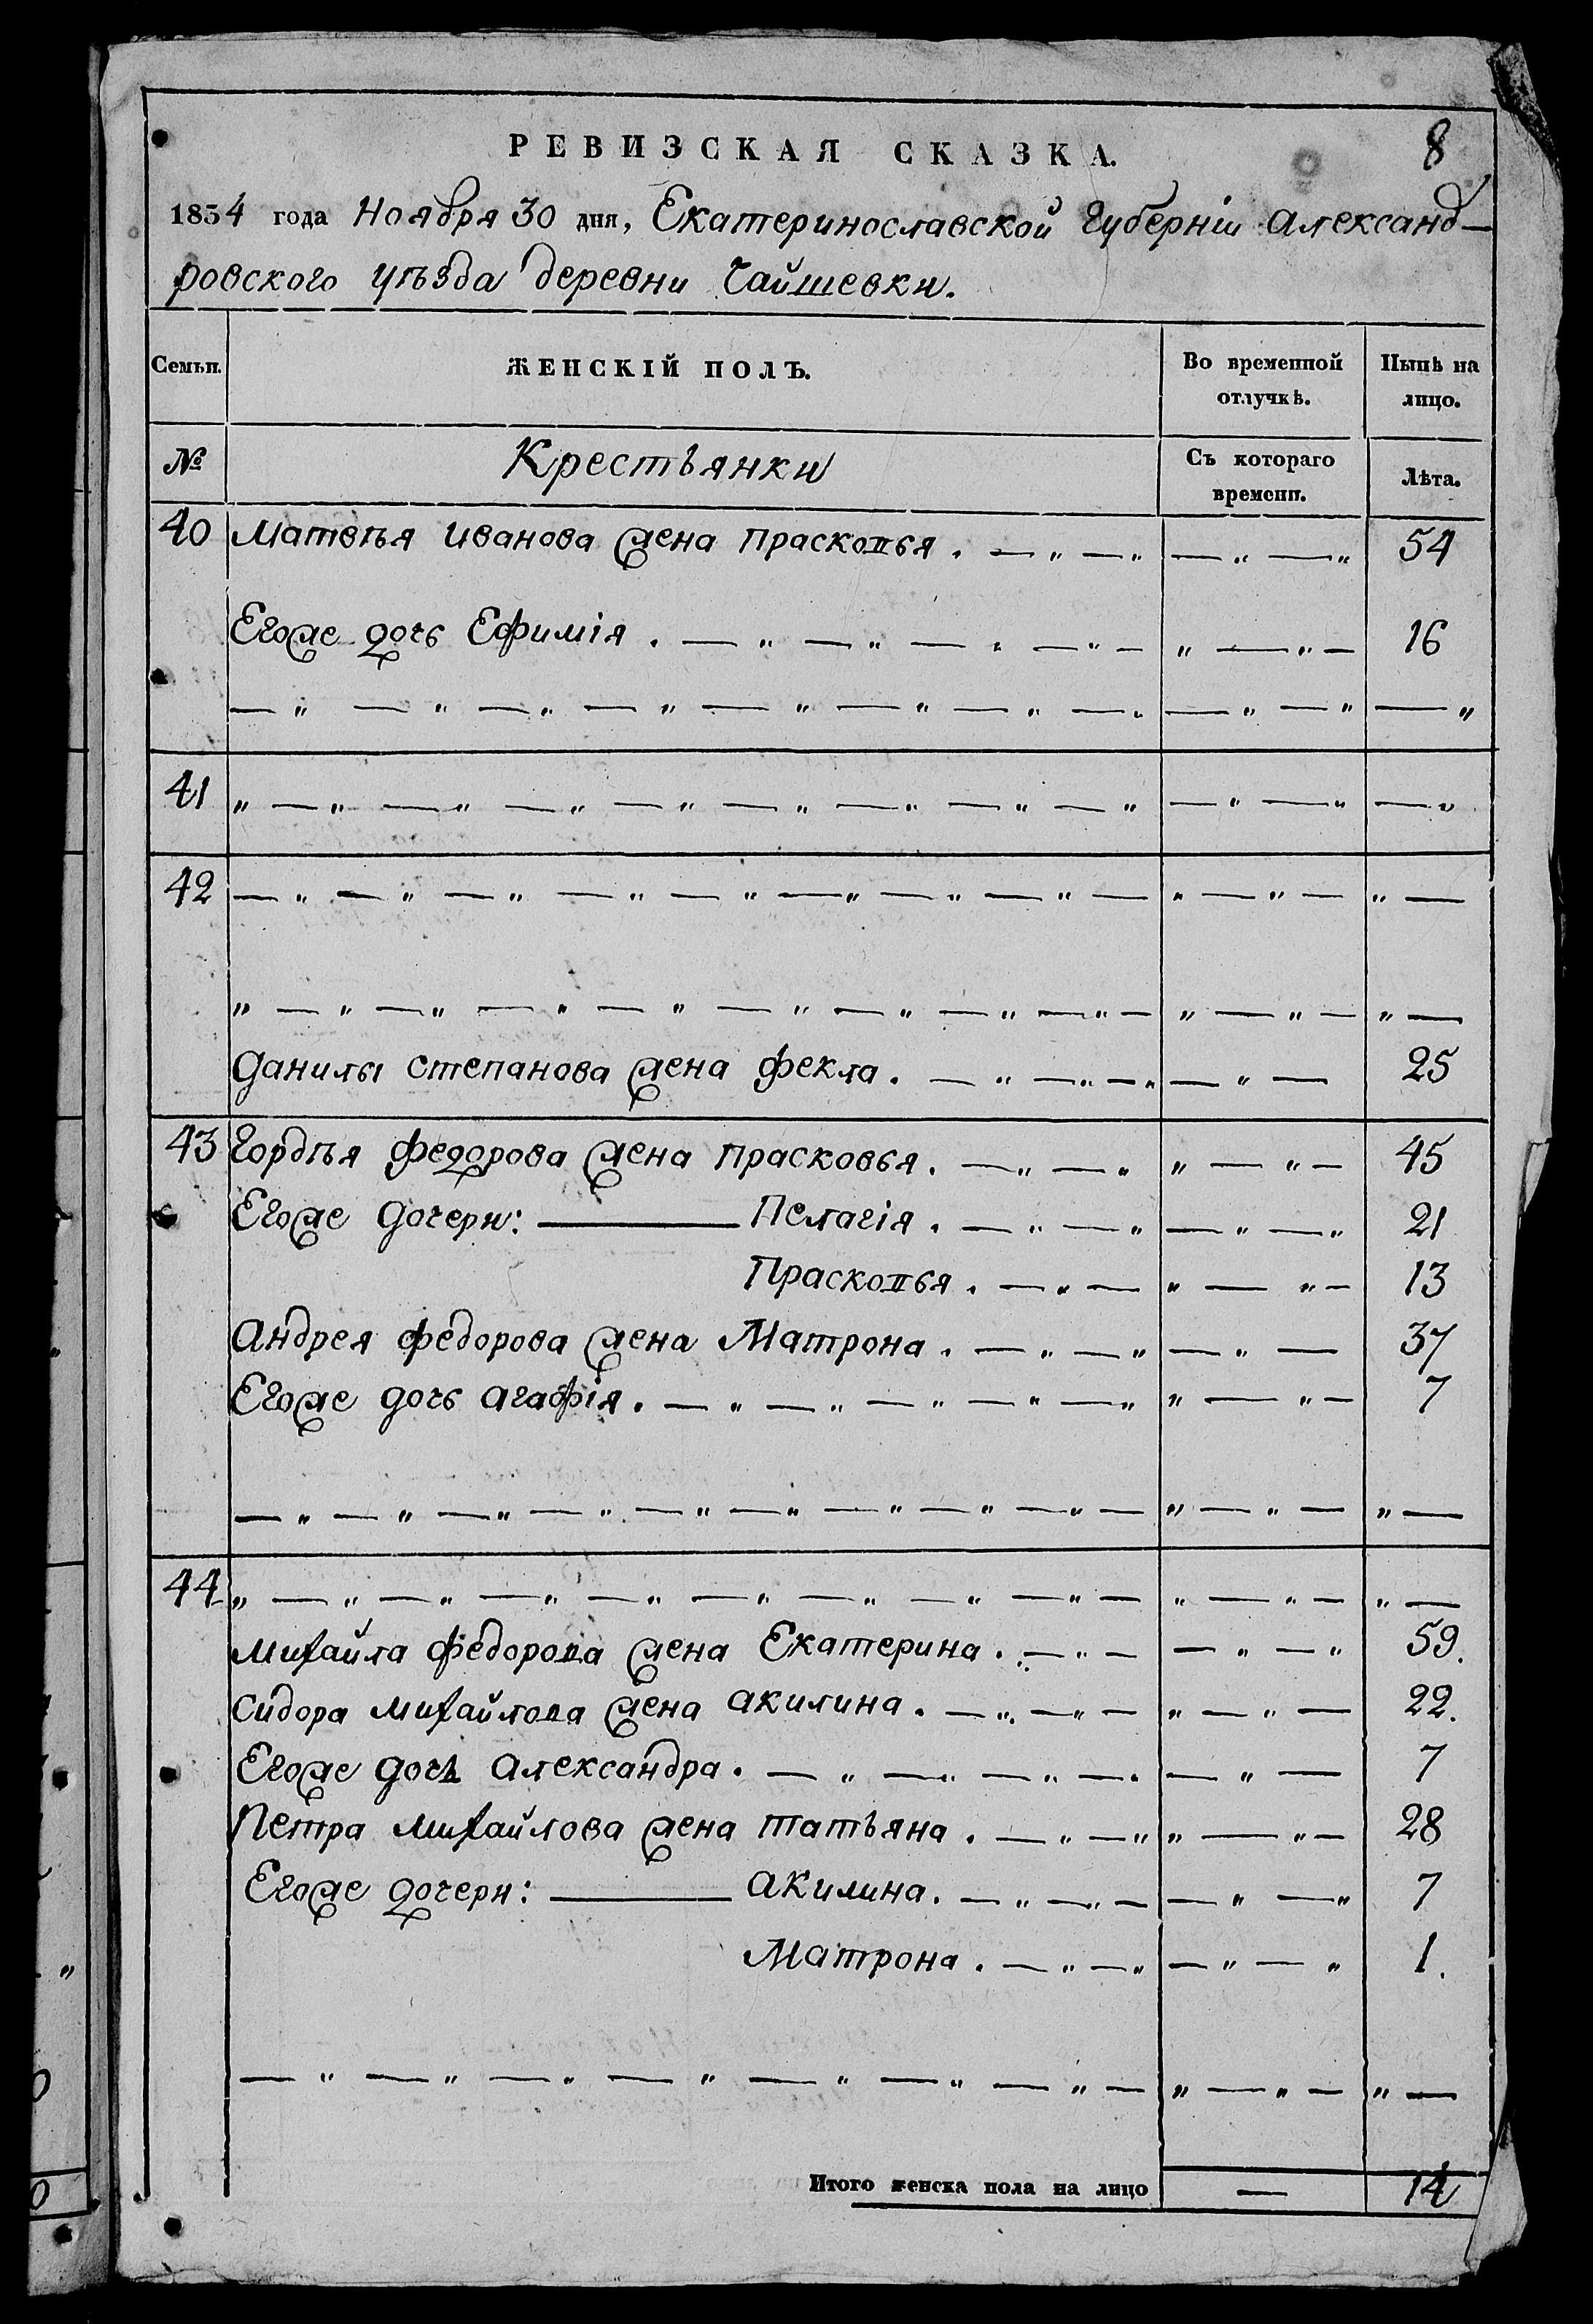 РЕВИЗСКАЯ СКАЗКА. 8
1854 года Ноября 30 дня, Екатеринославской Губерніи Александ-
ровского уѣзда деревни Гайшевки.
Семьи. ЖЕНСКІЙ ПОЛЪ. Во временной отлучкѣ. Нынѣ на лицо.
№ Крестьянки Съ котораго времени. Лѣта.
40 Матвѣя Иванова жена Прасковья. — „ — „ — „ — „ 54
Егоже дочь Ефимія. — „ — „ — „ — „ — „ — „ — 16
— „ — „ — „ — „ — „ — „ — „ — „ — „ — „ — „ — „ — „
41 „ — „ — „ — „ — „ — „ — „ — „ — „ — „ — „ — „
42 — „ — „ — „ — „ — „ — „ — „ — „ — „ — „ — „ —
„ — „ — „ — „ — „ — „ — „ — „ — „ — „ — „ — „ —
Данилы Степанова жена Фекла. — „ — „ — „ — „ — 25
43 Гордѣя Федорова жена Прасковья. — „ — „ „ — „ — 45
Егоже дочери: — Пелагія. — „ — „ — „ — „ 21
Прасковья. — „ — „ — „ — 13
Андрея Федорова жена Матрона. — „ — „ — „ — 37
Егоже дочь Агафія. — „ — „ — „ — „ — „ „ — „ — 7
— „ — „ — „ — „ — „ — „ — „ — „ — „ — „ — „ — „ —
44 „ — „ — „ — „ — „ — „ — „ — „ — „ — „ — „ — „ —
Михайла Федорова жена Екатерина. „ — „ — — „ — „ 59.
Сидора Михайлова жена Акилина. — „ — „ — „ — „ — 22.
Егоже дочь Александра. — „ — „ — „ — „ — „ — 7
Петра Михайлова жена Татьяна. — „ — „ „ — „ — 28
Егоже дочери: — Акилина. — „ — „ — — „ — „ 7
Матрона. — „ — „ — „ — „ 1.
— „ — „ — „ — „ — „ — „ — „ — „ — „ — „ —
Итого женска пола на лицо — 14